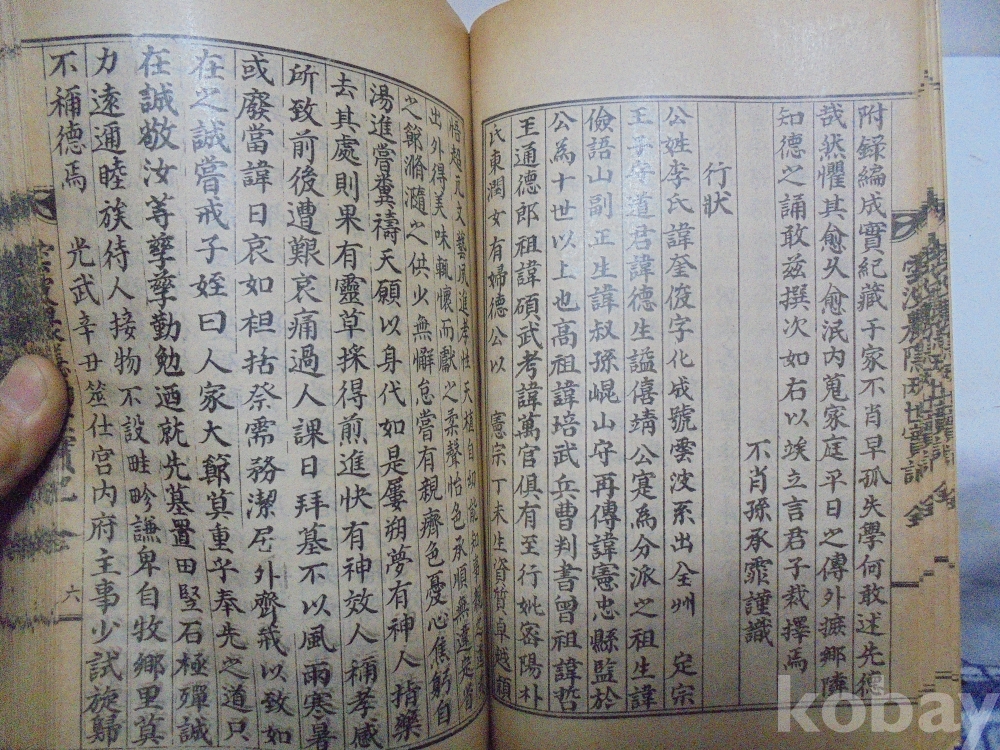 附錄編成實紀藏于家不肖早孤失學何敢述先德
哉然懼其愈久愈泯內蒐家庭平日之傳外摭鄕隣
知德之誦敢玆撰次如右以竢立言君子裁擇焉
不肖孫承霏謹識
行狀
公姓李氏諱奎俊字化成號雲波系出全州 定宗
王子守道君諱德生諡僖靖公寔爲分派之祖生諱
儉語山副正生諱叔孫崐山守再傳諱憲忠縣監於
公為十世以上也高祖諱培武兵曹判書曾祖諱哲
王通德郞祖諱碩武考諱萬官俱有至行妣密陽朴
氏東濶女有婦德公以 憲宗丁未生資質卓越穎
悟超凡文藝夙進孝性天植自幼能知事親之
出外得美味輒懷而獻之柔聲怡色承順無違定省
之節滫瀡之供少無懈怠嘗有親癠色憂心焦躬自
湯進嘗糞禱天願以身代如是屢朔夢有神人指藥
去其處則果有靈草採得煎進快有神效人稱孝感
所致前後遭艱哀痛過人課日拜墓不以風雨寒暑
或廢當諱日哀如袒括祭需務潔尼外齊戒以致如
在之誠嘗戒子姪曰人家大節莫重乎奉先之道只
在誠敬汝等孳孳勤勉迺就先墓置田竪石極殫誠
力遠邇睦族待人接物不設畦畛謙卑自牧鄕里莫
不稱德焉 光武辛丑筮仕宮內府主事少試旋歸
六
kobay